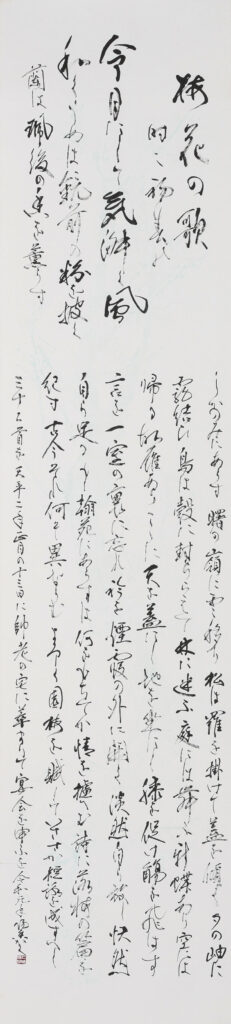 梅花の歌
時に初春の
令月にして気淑く風
和らき梅は鏡前の粉を披く
蘭は珮後の香を薫らす
しかのみにあらす曙の嶺に雲移り松は羅を掛けて蓋を傾け夕の岫に
霧結ひ鳥は縠に封められて林に迷ふ庭には舞ふ新蝶あり空には
帰る故雁ありここに天を蓋にし地を坐にし膝を促け觴を飛はす
言を一室の裏に忘れ衿を煙霞の外に開く淡然自ら放し快然
自ら足るもし翰苑にあらすは何を以てか情を攄へむ詩に落梅の篇を
紀す古今それ何そ異ならむよろしく園梅を賦していささか短詠を成すへし
三十二首天平二年正月の十三日に帥老の宅に萃まりて宴会を申ふ令和元年